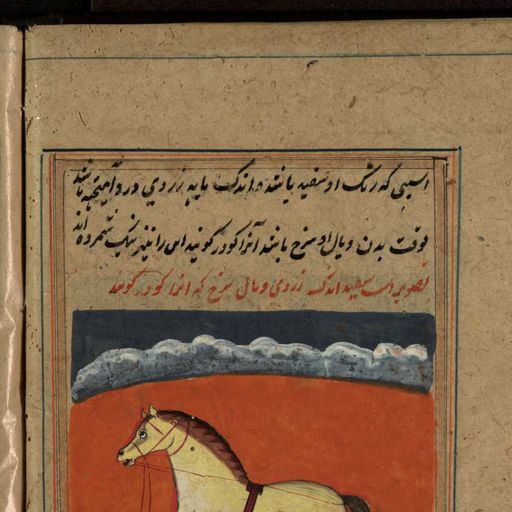 اسپی که رنگ او سفید باشد و اندک مایه زردی در و آمیخته باشد
فوقت بدن و یال او سرخ باشد آنرا کودر کویند این را نیز نیک شمرده اند
تصویر اسپ سفید اندک زردی و یال سرخ که انرا کودر کویند